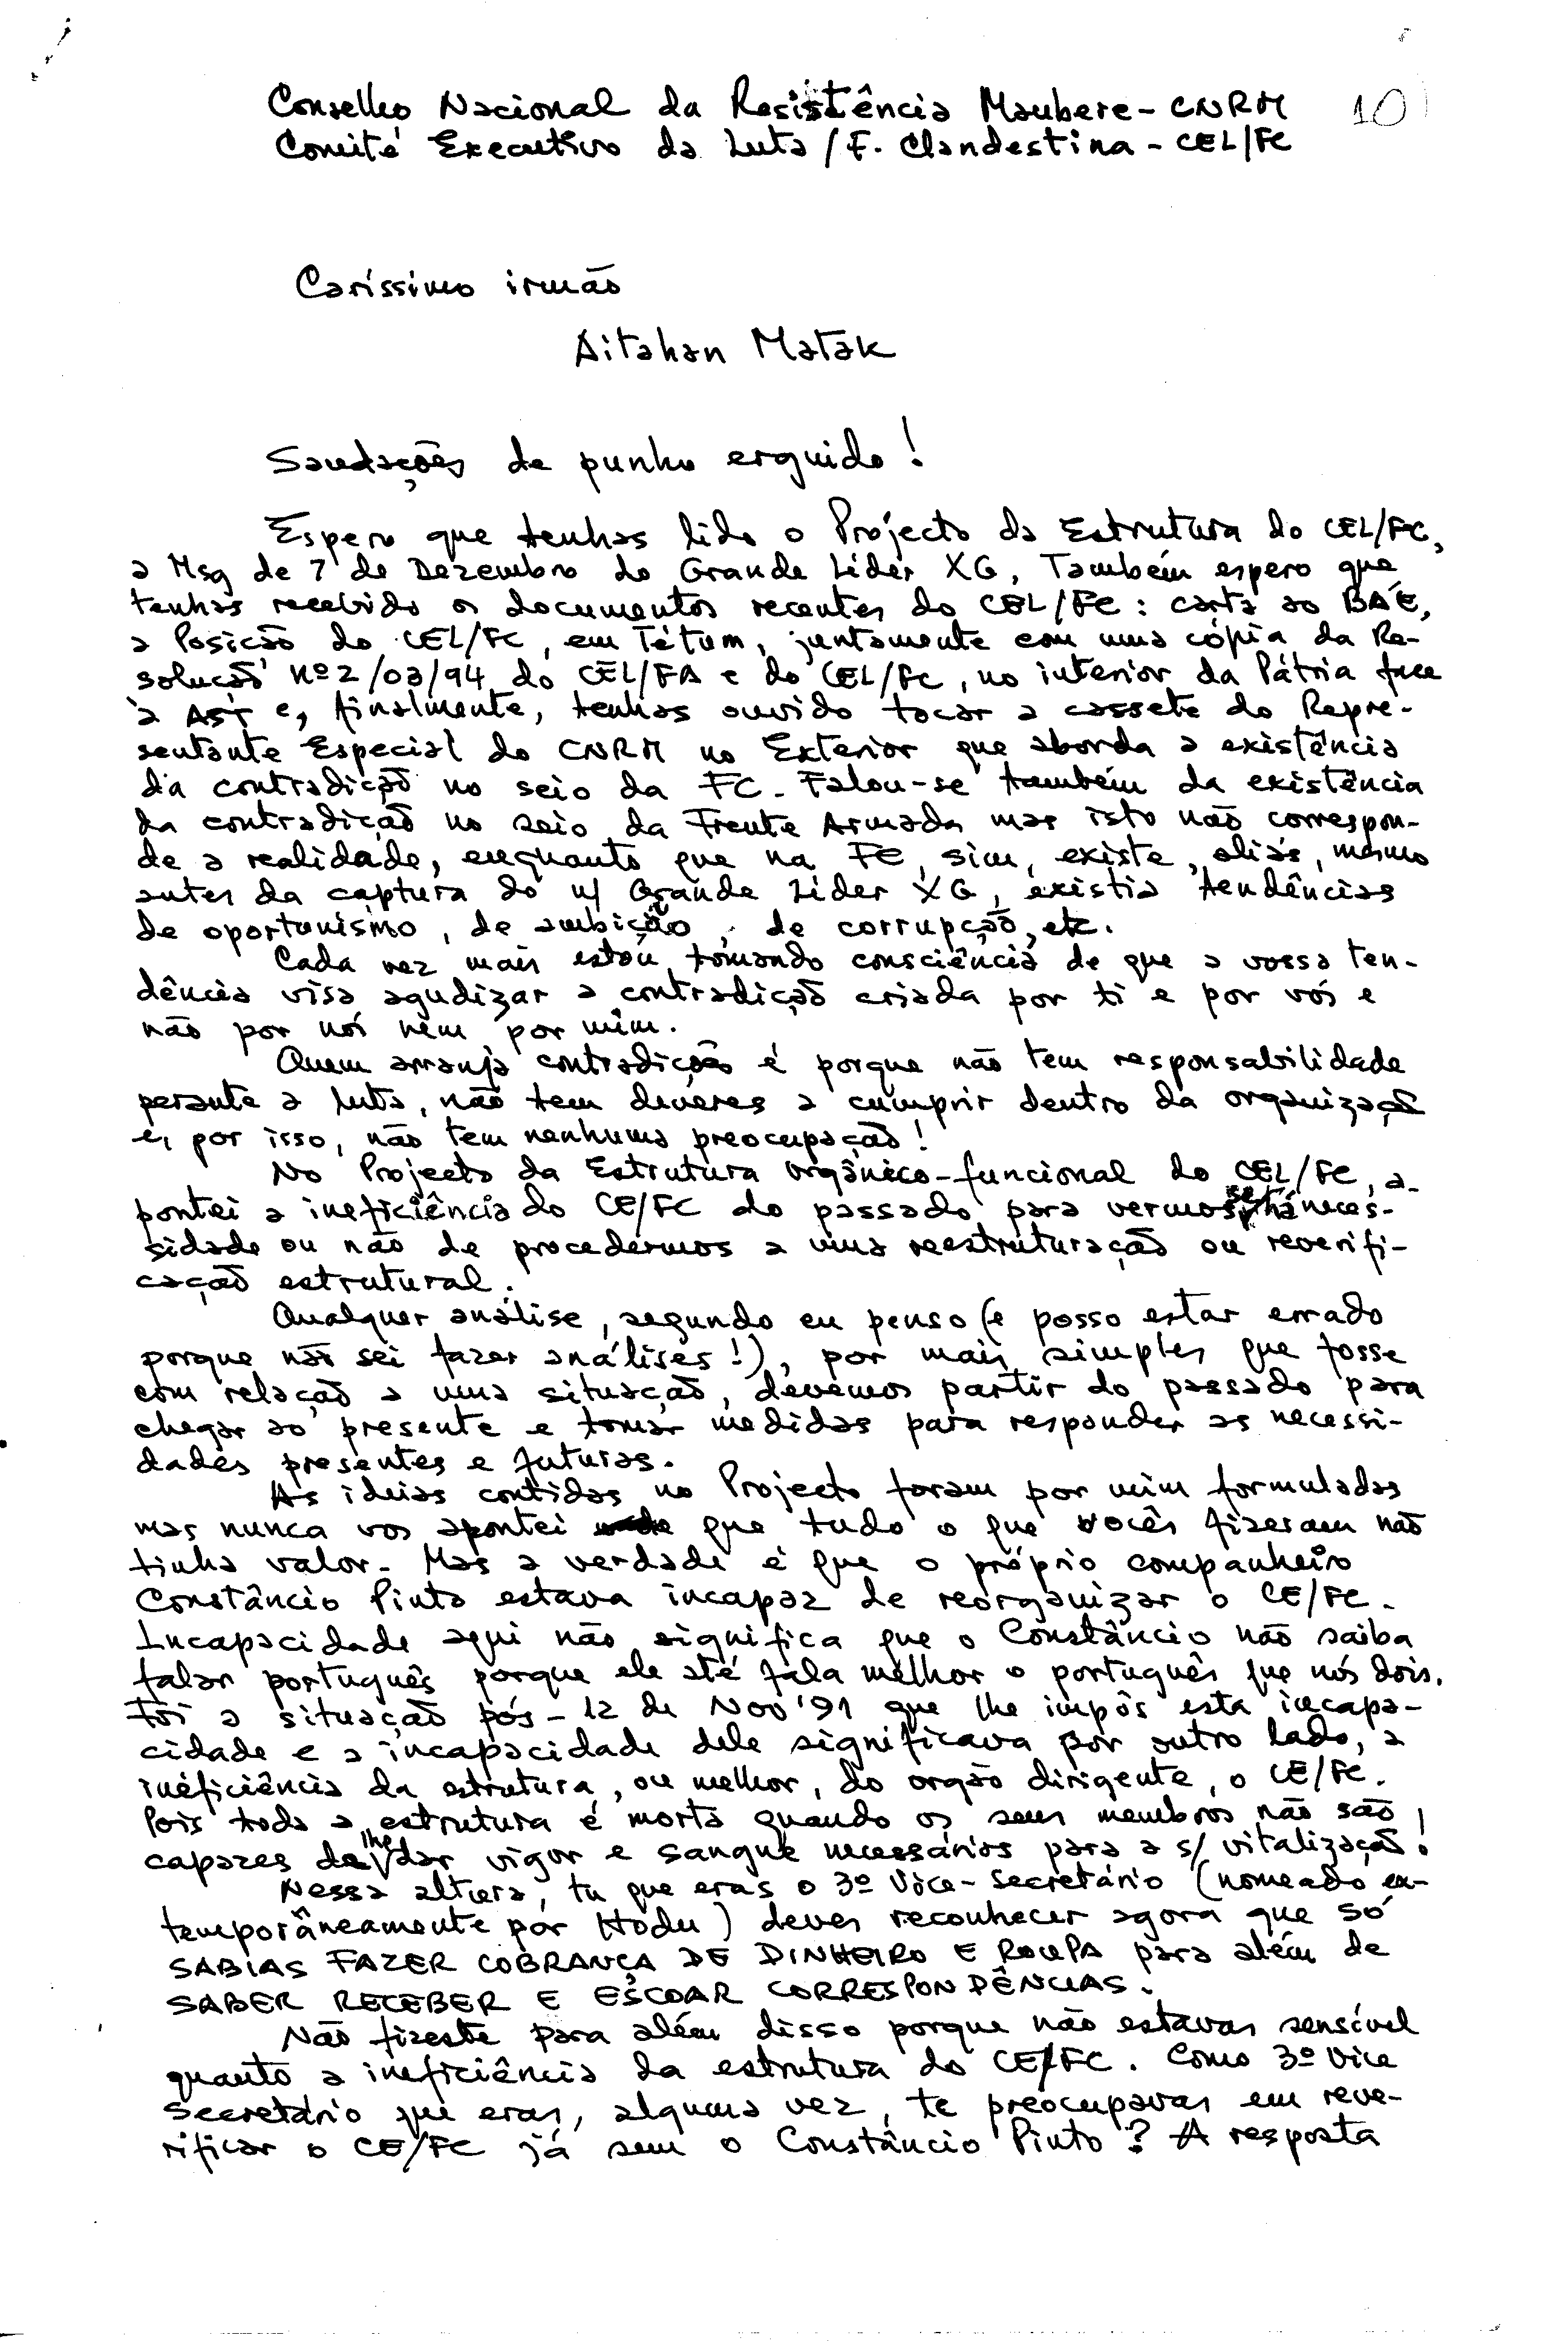 Conselho Nacional da Resistência Maubere - CNRM 10
Comité Executivo da Luta / F. Clandestina - CEL/FC
Caríssimo irmão
Aitahan Matak
Saudações de punho erguido!
Espero que tenhas lido o Projecto da Estrutura do CEL/FC,
a Msg de 7 de Dezembro do Grande Líder XG, Também espero que
tenhas recebido os documentos recentes do CEL/FC: carta ao BAE,
a Posição do CEL/FC, em Tétum, juntamente com uma cópia da Re-
solução nº 2/03/94 do CEL/FA e do CEL/FC, no interior da Pátria face
à AST e, finalmente, tenhas ouvido tocar a cassete do Repre-
sentante Especial do CNRM no Exterior que aborda a existência
da contradição no seio da FC. Falou-se também da existência
da contradição no seio da Frente Armada mas isto não correspon-
de a realidade, enquanto que na FC, sim, existe, aliás, mesmo
antes da captura do n/ Grande Líder XG, existia tendências
de oportunismo, de ambição, de corrupção, etc.
Cada vez mais estou tomando consciência de que a vossa ten-
dência visa agudizar a contradição criada por ti e por vós e
não por nós nem por mim.
Quem arranja contradições é porque não tem responsabilidade
perante a luta, não tem deveres a cumprir dentro da organização
e, por isso, não tem nenhuma preocupação!
No Projecto da Estrutura orgânico-funcional do CEL/FC, a-
pontei a ineficiência do CE/FC do passado para vermos se há neces-
sidade ou não de procedermos a uma reestruturação ou reverifi-
cação estrutural.
Qualquer análise, segundo eu penso (e posso estar errado
porque não sei fazer análises!), por mais simples que fosse
com relação a uma situação, devemos partir do passado para
chegar ao presente e tomar medidas para responder as necessi-
dades presentes e futuras.
As ideias contidas no Projecto foram por mim formuladas
mas nunca vos apontei que tudo o que vocês fizeram não
tinha valor. Mas a verdade é que o próprio companheiro
Constâncio Pinto estava incapaz de reorganizar o CE/FC.
Incapacidade aqui não significa que o Constâncio não saiba
falar português porque ele até fala melhor o português que nós dois.
Foi a situação pós-12 de Nov '91 que lhe impôs esta incapa-
cidade e a incapacidade dele significava por outro lado, a
ineficiência da estrutura, ou melhor, do orgão dirigente, o CE/FC.
Pois toda a estrutura é morta quando os seus membros não são
capazes de lhe dar vigor e sangue necessários para a s/ vitalização!
Nessa altura, tu que eras o 3º Vice-Secretário (nomeado ex-
temporâneamente por Hodu) deves reconhecer agora que só
SABIAS FAZER COBRANÇA DE DINHEIRO E ROUPA para além de
SABER RECEBER E ESCOAR CORRESPONDÊNCIAS.
Não fizeste para além disso porque não estavas sensível
quanto a ineficiência da estrutura do CE/FC. Como 3º Vice
Secretário que eras, alguma vez, te preocupavas em reve-
rificar o CE/FC já sem o Constâncio Pinto? A resposta